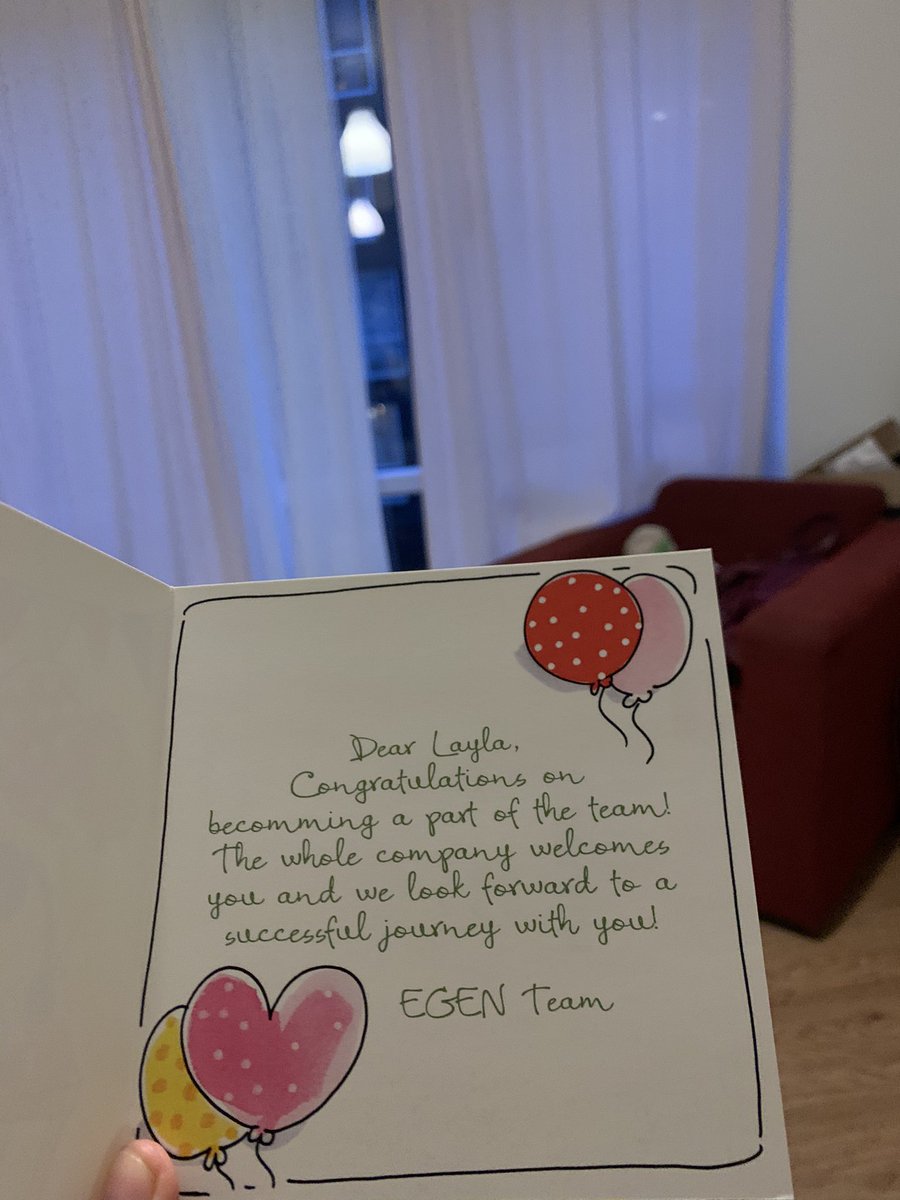 Dear Layla,
Congratulations on
becomming a part of the team!
The whole company welcomes
you and we look forward to a
successful journey with you!
EGEN Team